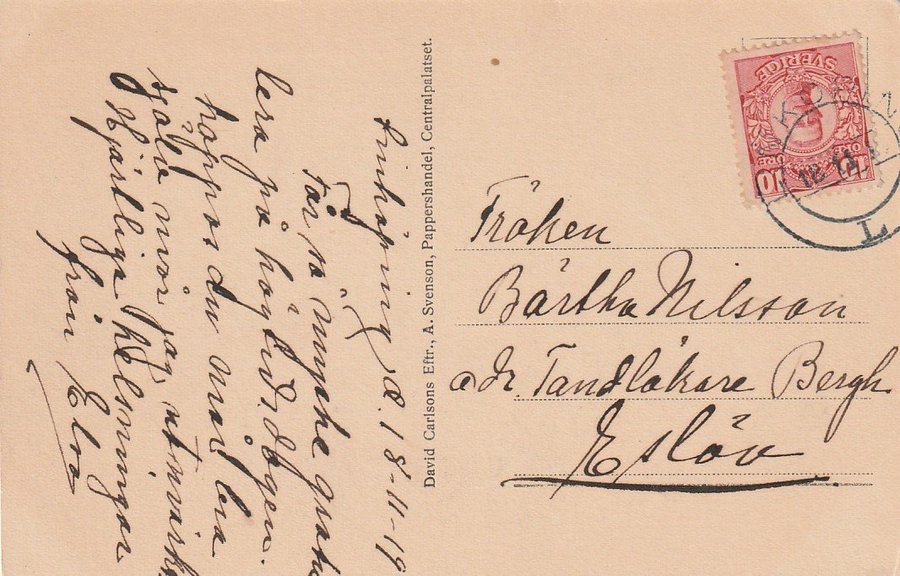 Linköping d. 18-11-19
Får så mycke gratu
lera på högtidsdagen.
hoppas du mår bra
själv mår jag utmärkt
Hjärtliga helsningar
från Elva
David Carlsons Eftr., A. Svenson, Pappershandel, Centralpalatset.
SVERIGE
10 ÖRE 10
18.11
L.
Fröken
Bärtha Nilsson
adr. Tandläkare Bergh
Eslöv